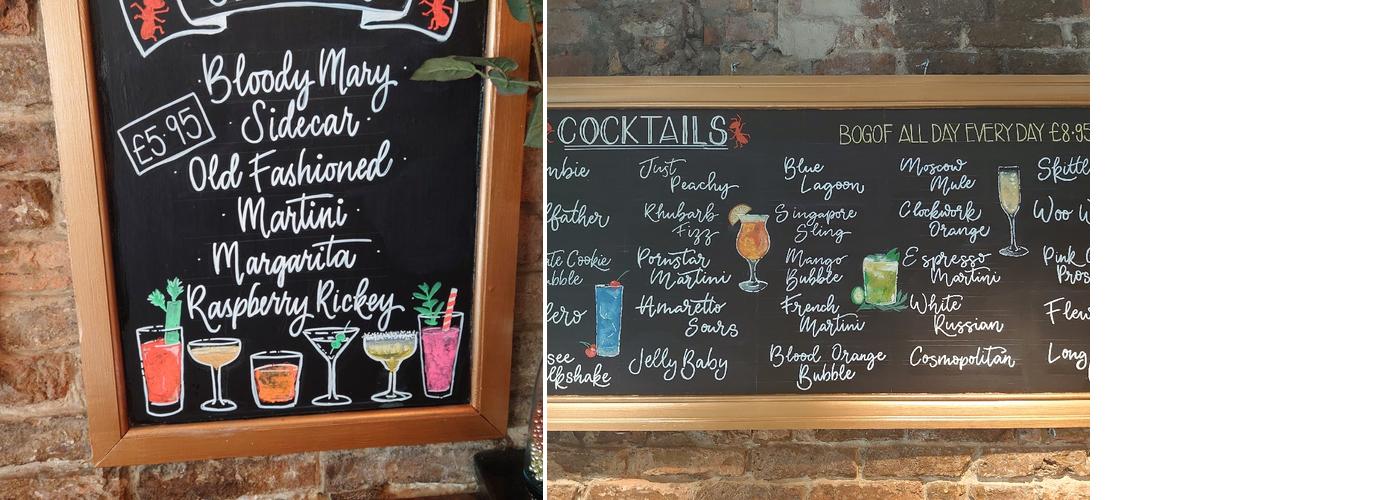 Bloody Mary
£5.95
Sidecar
Old Fashioned
Martini
Margarita
Raspberry Rickey
COCKTAILS
BOGOF ALL DAY EVERY DAY £8.95
Just
Peachy
Rhubarb
Fizz
Pornstar
Martini
Amaretto
Sours
Jelly Baby
Blue
Lagoon
Singapore
Sling
Mango
Bubble
French
Martini
Blood Orange
Bubble
Moscow
Mule
Clockwork
Orange
Espresso
Martini
White
Russian
Cosmopolitan
Woo
Pink
Long